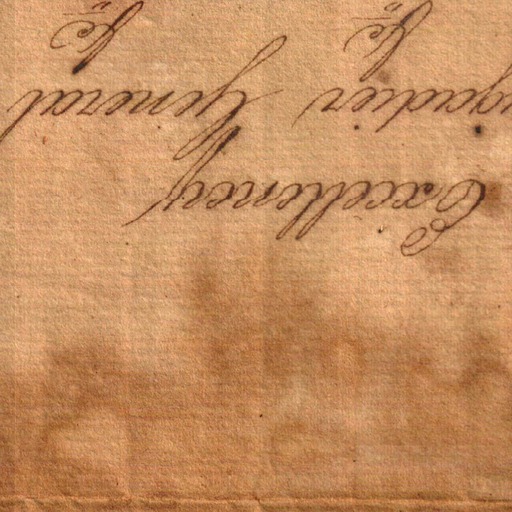 Excellency
Brigadier General
&c &c